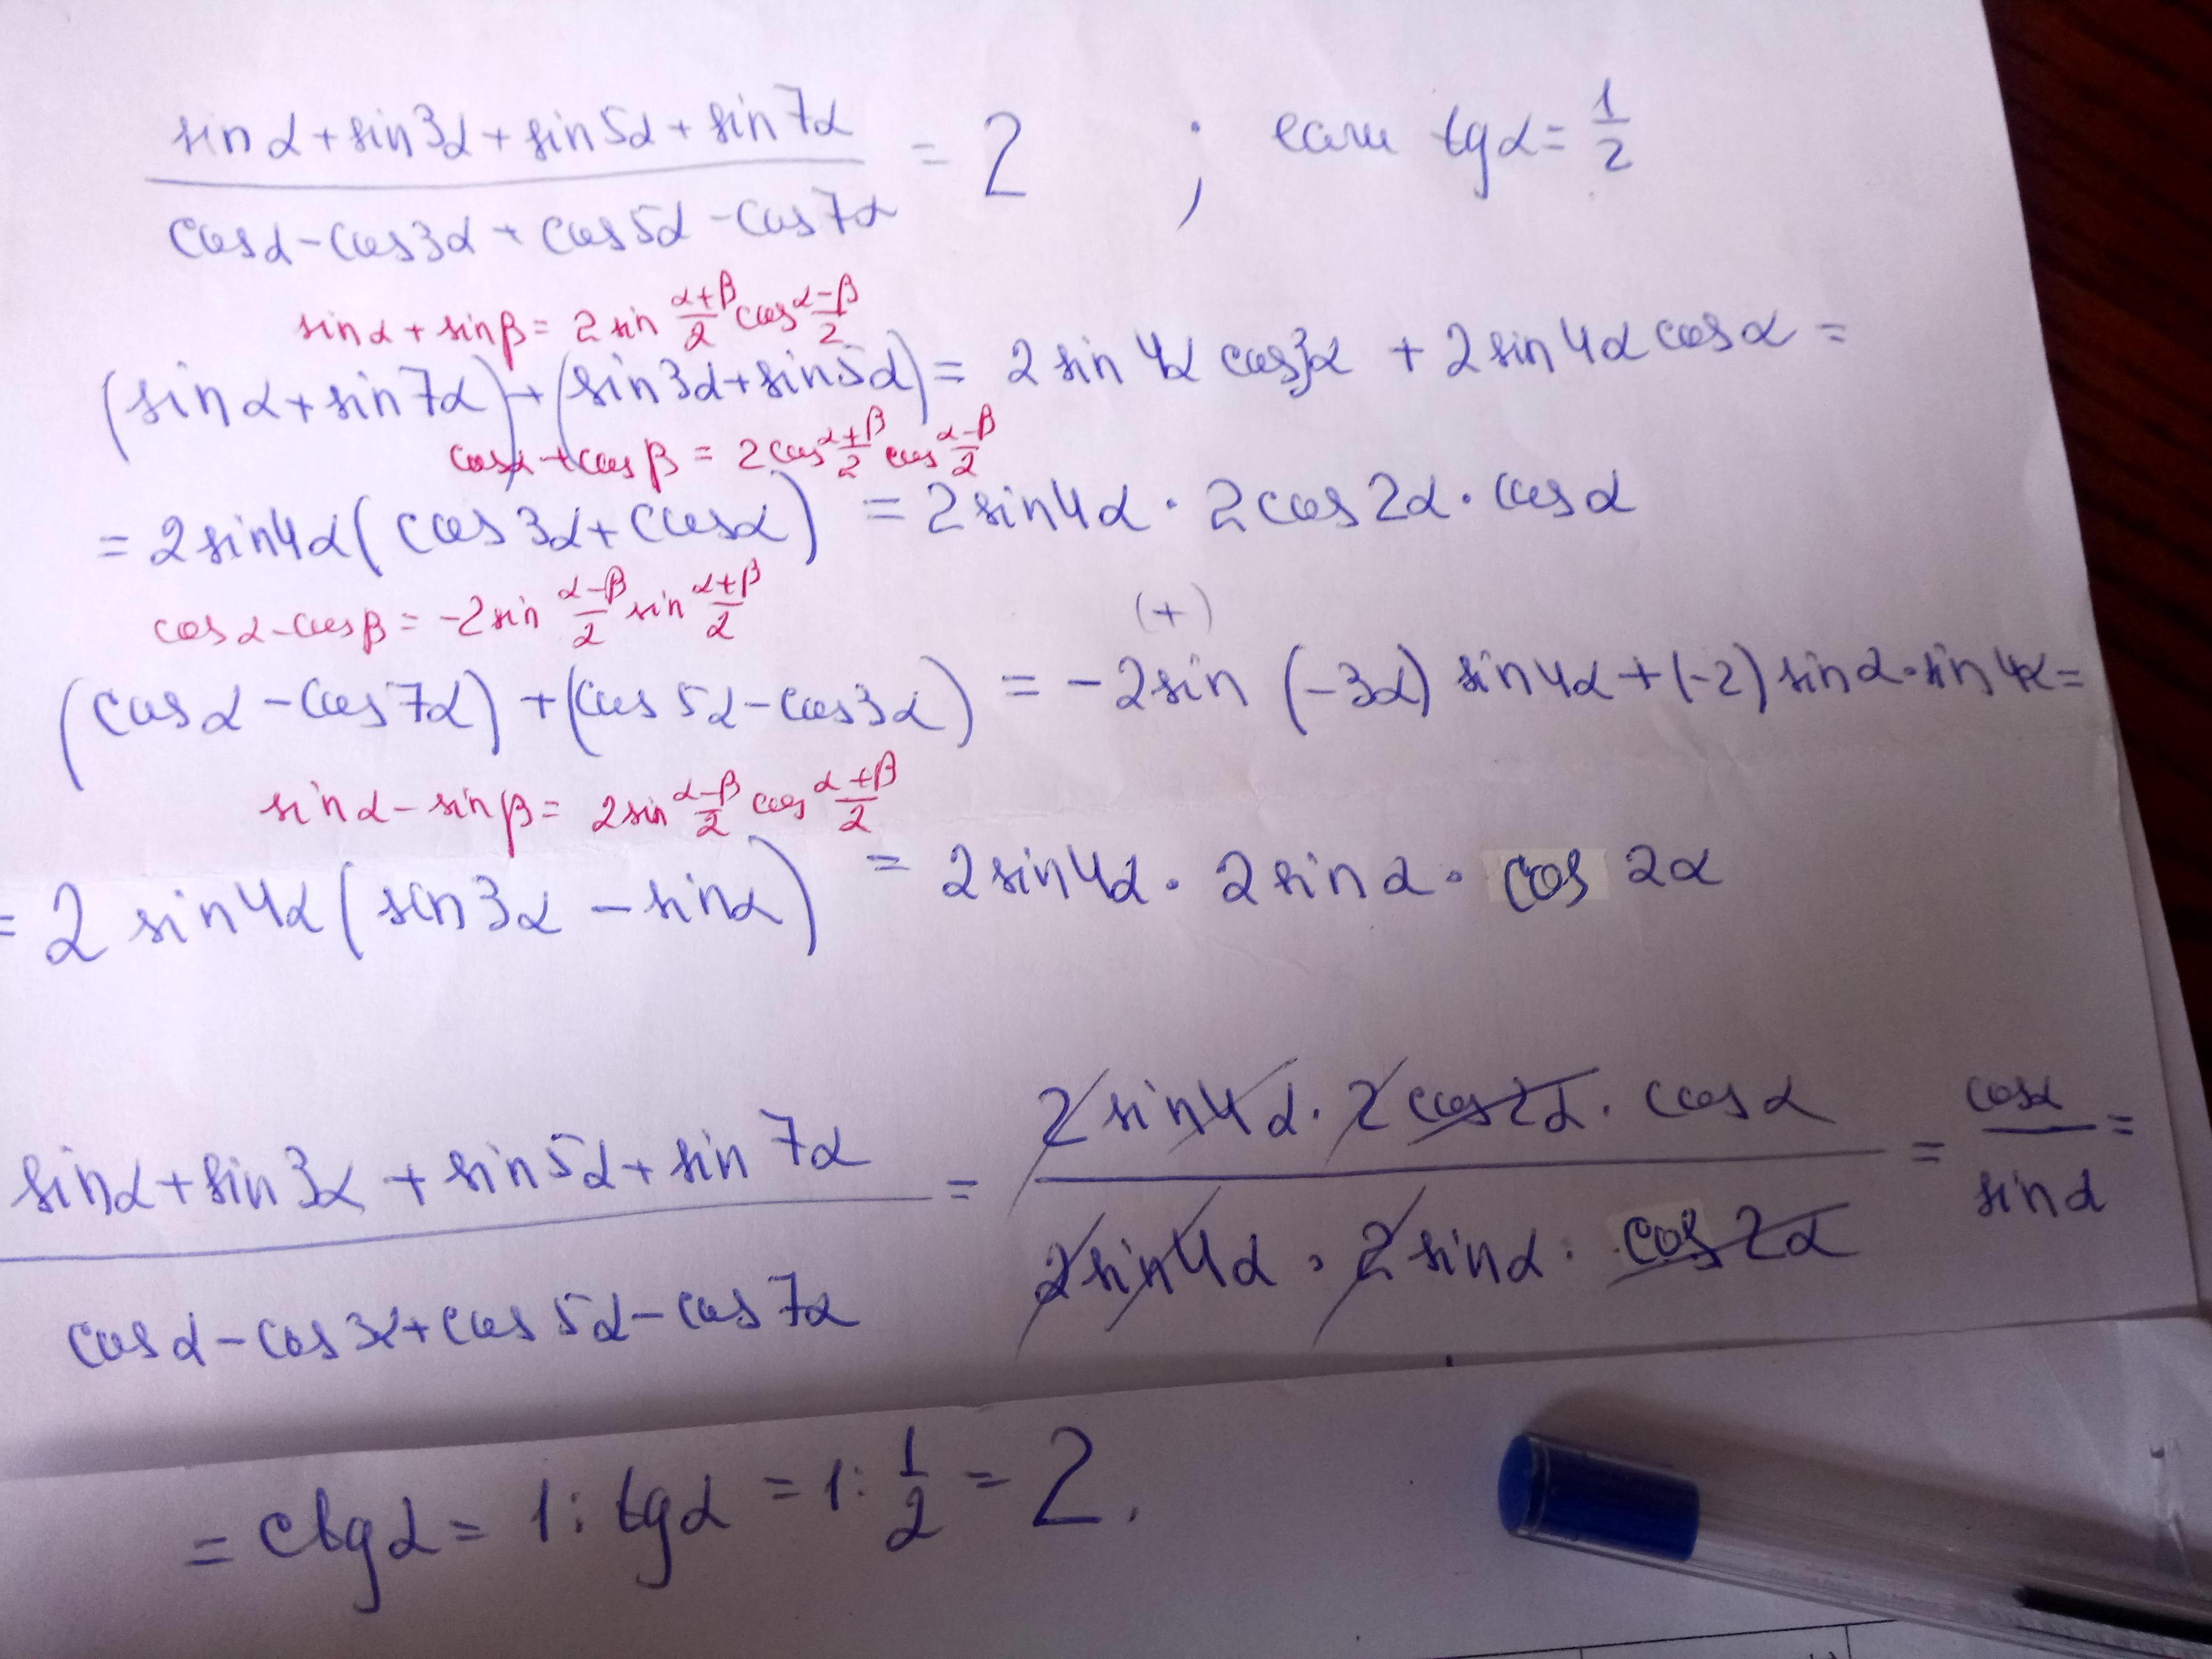 (sinα + sin3α + sin5α + sin7α)/(cosα - cos3α + cos5α - cos7α) = 2 ; если tgα = 1/2
sinα + sinβ = 2 sin (α+β)/2 cos (α-β)/2
(sinα + sin7α) + (sin3α + sin5α) = 2 sin 4α cos3α + 2 sin 4α cosα =
cosα + cosβ = 2 cos (α+β)/2 cos (α-β)/2
= 2 sin4α (cos3α + cosα) = 2 sin4α · 2 cos 2α · cosα
cosα - cosβ = -2 sin (α-β)/2 sin (α+β)/2
(+)
(cosα - cos7α) + (cos 5α - cos3α) = -2 sin (-3α) sin4α + (-2) sinα · sin 4α =
sinα - sinβ = 2 sin (α-β)/2 cos (α+β)/2
= 2 sin4α (sin3α - sinα) = 2 sin4α · 2 sinα · cos 2α
(sinα + sin3α + sin5α + sin 7α)/(cosα - cos3α + cos 5α - cos 7α) = (2 sin4α · 2 cos2α · cosα)/(2 sin4α · 2 sinα · cos 2α) = cosα/sinα =
= ctgα = 1 : tgα = 1 : 1/2 = 2.